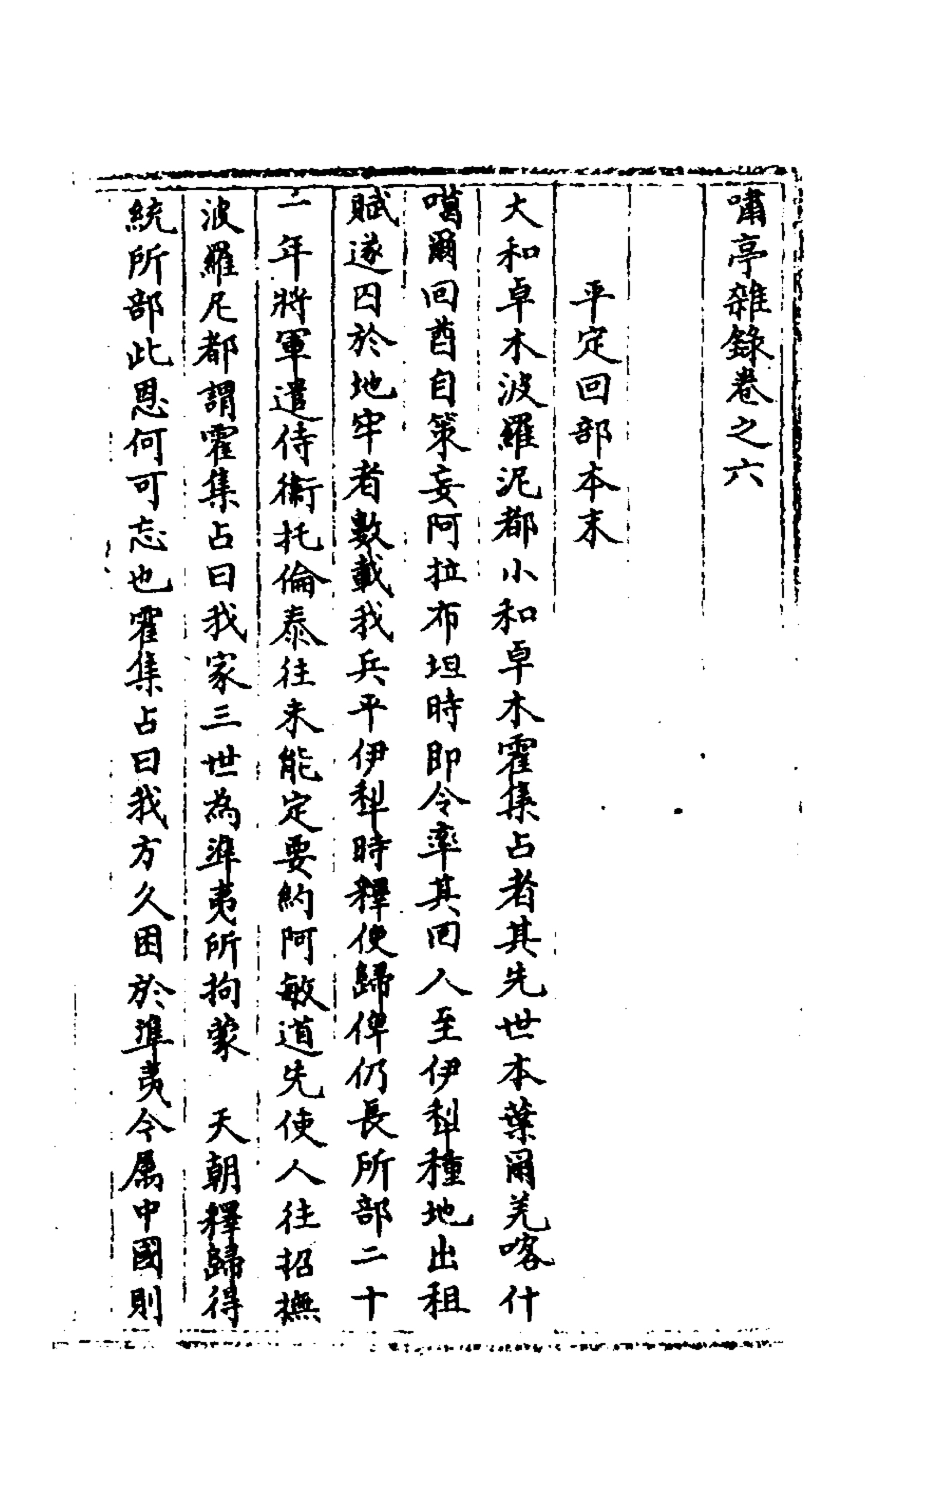 嘯亭雜錄卷之六
平定回部本末
大和卓木波羅泥都小和卓木霍集占者其先世本葉爾羌喀什
噶爾回酋自策妄阿拉布坦時即令率其回人至伊犁種地出租
賦遂囚於地牢者數載我兵平伊犁時釋使歸俾仍長所部二十
二年將軍遣侍衛托倫泰往来能定要約阿敏道先使人往招撫
波羅尼都謂霍集占曰我家三世為準夷所拘蒙　天朝釋歸得
統所部此恩何可忘也霍集占曰我方久困於準夷今属中國則